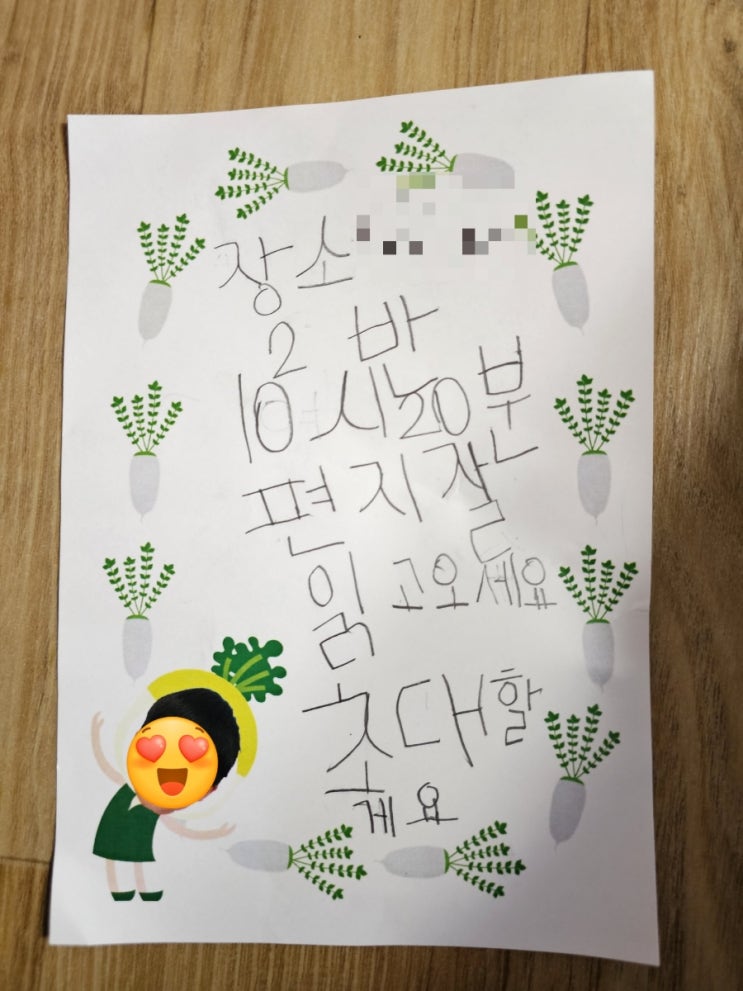 장소
2 바
10시 20분
편지 잘
읽고오세요
초대할
게요